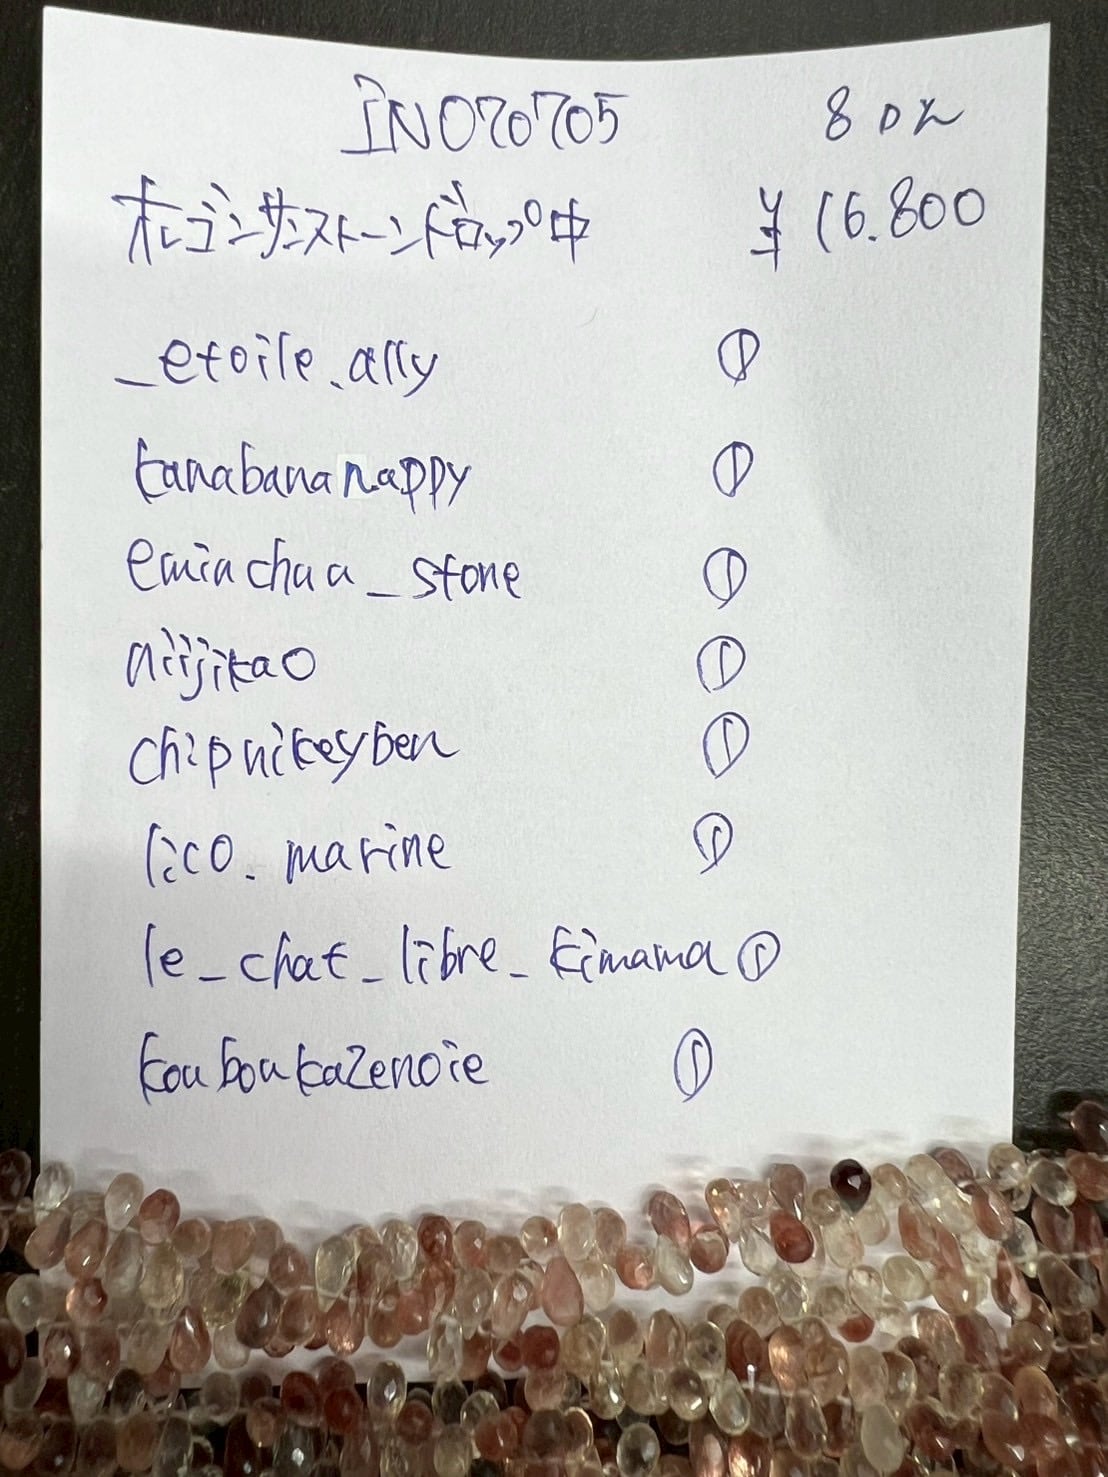 INO70705 8连
オレゴンサンストーンドロップ中 ¥16.800
_etoile.ally ①
kanabananappy ①
emiachaa_stone ①
aiijikao ①
chipnikeyben ①
lico.marine ①
le_chat_libre_kimama ①
kouboukazenoie ①